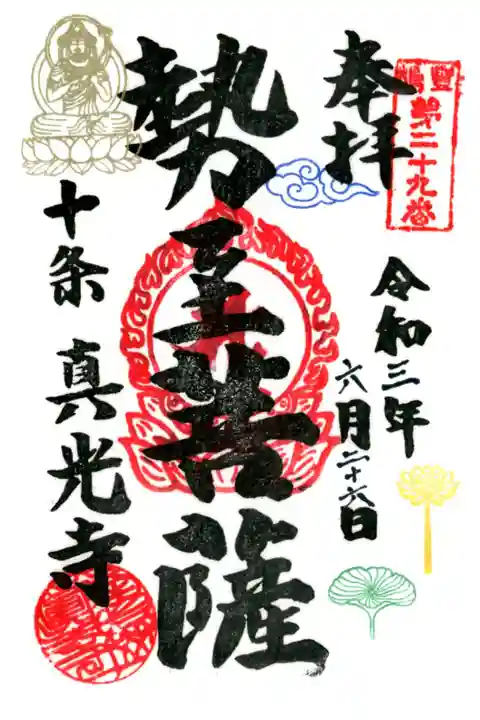 奉拝
豊島
第二十九番
令和三年
六月二十六日
勢至菩薩
十条 真光寺